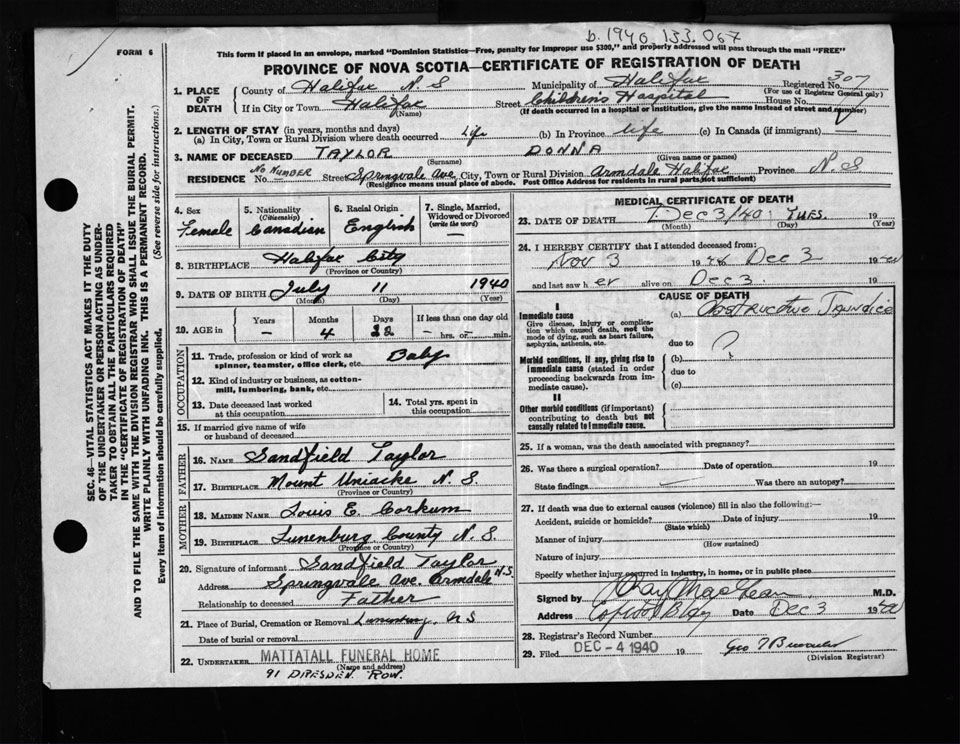 b. 1940 133 067
FORM 6
This form if placed in an envelope, marked "Dominion Statistics—Free, penalty for improper use $300," and properly addressed will pass through the mail "FREE"
PROVINCE OF NOVA SCOTIA—CERTIFICATE OF REGISTRATION OF DEATH
SEC. 46—VITAL STATISTICS ACT MAKES IT THE DUTY
OF THE UNDERTAKER OR PERSON ACTING AS UNDER-
TAKER TO OBTAIN ALL THE PARTICULARS REQUIRED
IN THE "CERTIFICATE OF REGISTRATION OF DEATH"
AND TO FILE THE SAME WITH THE DIVISION REGISTRAR WHO SHALL ISSUE THE BURIAL PERMIT.
WRITE PLAINLY WITH UNFADING INK. THIS IS A PERMANENT RECORD.
Every item of information should be carefully supplied. (See reverse side for instructions.)
1. PLACE OF DEATH County of Halifax N.S Municipality of Halifax Registered No. 307
(For use of Registrar General only)
If in City or Town Halifax Street Children's Hospital House No.
(Name) (If death occurred in a hospital or institution, give the name instead of street and number)
2. LENGTH OF STAY (in years, months and days)
(a) In City, Town or Rural Division where death occurred Life (b) In Province life (c) In Canada (if immigrant) —
3. NAME OF DECEASED TAYLOR DONNA
(Surname) (Given name or names)
RESIDENCE No. NO NUMBER Street Springvale Ave City, Town or Rural Division Armdale Halifax Province N.S
(Residence means usual place of abode. Post Office Address for residents in rural parts not sufficient)
4. Sex Female
5. Nationality (Citizenship) Canadian
6. Racial Origin English
7. Single, Married, Widowed or Divorced (write the word) —
8. BIRTHPLACE Halifax City
(Province or Country)
9. DATE OF BIRTH July 11 1940
(Month) (Day) (Year)
10. AGE in Years — Months 4 Days 22 If less than one day — hrs. or — min.
OCCUPATION
11. Trade, profession or kind of work as spinner, teamster, office clerk, etc. Baby
12. Kind of industry or business, as cotton-mill, lumbering, bank, etc.
13. Date deceased last worked at this occupation
14. Total yrs. spent in this occupation
15. If married give name of wife or husband of deceased
FATHER
16. NAME Sandfield Taylor
17. BIRTHPLACE Mount Uniacke N.S.
(Province or Country)
MOTHER
18. MAIDEN NAME Louis E. Corkum
19. BIRTHPLACE Lunenburg County N.S.
(Province or Country)
20. Signature of informant Sandfield Taylor
Address Springvale Ave. Armdale N.S
Relationship to deceased Father
21. Place of Burial, Cremation or Removal Lunenburg, N.S
Date of burial or removal
22. UNDERTAKER MATTATALL FUNERAL HOME
(Name and address)
91 DRESDEN ROW.
MEDICAL CERTIFICATE OF DEATH
23. DATE OF DEATH Dec 3/40 TUES. 19
(Month) (Day) (Year)
24. I HEREBY CERTIFY that I attended deceased from:
Nov 3 19 Dec 3 1940
and last saw her alive on Dec 3. 19
CAUSE OF DEATH
I
Immediate cause (a) Obstructive Jaundice
Give disease, injury or complication which caused death, not the mode of dying, such as heart failure, asphyxia, asthenia, etc.
due to ?
Morbid conditions, if any, giving rise to immediate cause (stated in order proceeding backwards from immediate cause). (b)
due to
(c)
II
Other morbid conditions (if important) contributing to death but not causally related to immediate cause.
25. If a woman, was the death associated with pregnancy?
26. Was there a surgical operation? Date of operation 19
State findings Was there an autopsy?
27. If death was due to external causes (violence) fill in also the following:—
Accident, suicide or homicide? Date of injury 19
(State which)
Manner of injury
(How sustained)
Nature of injury
Specify whether injury occurred in industry, in home, or in public place
Signed by Ray MacLean M.D.
Address Date Dec 3 1940
28. Registrar's Record Number
29. Filed DEC - 4 1940 19 Geo
(Division Registrar)